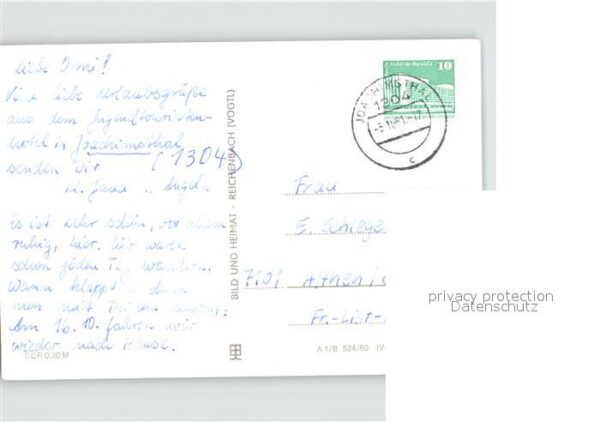 Liebe Omi!
Viele liebe Urlaubsgrüße
aus dem Jugendtouristen-
hotel in Joachimsthal
(1304)
senden Dir
Jana
Es ist sehr schön, vor allem
ruhig, hier. Wir waren
schon jeden Tag wandern.
Wann klappt's denn
nun mit Deinem
Am 16. 10. fahren wir
wieder nach Hause.
DDR 0,30 M
BILD UND HEIMAT · REICHENBACH (VOGTL)
A 1/B 524/80 IV-
Palast der Republik
10
JOACHIMSTHAL
1304
c
Frau
E. Schlege
7101 Althen
Fr.-List-
privacy protection
Datenschutz